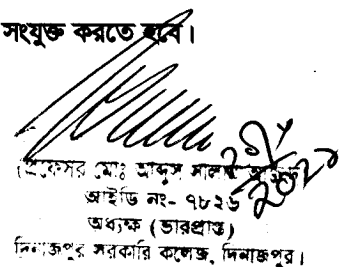 সংযুক্ত করতে হবে।
(প্রফেসর মোঃ আব্দুস
আইডি নং- ৭৮২৬
অধ্যক্ষ (ভারপ্রাপ্ত)
দিনাজপুর সরকারি কলেজ, দিনাজপুর।